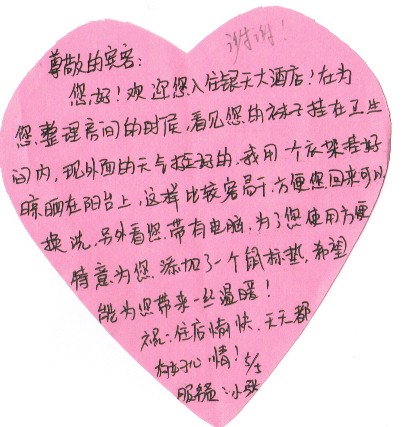 谢谢!
尊敬的宾客:
您好!欢迎您入住银天大酒店!在为
您整理房间的时候,看见您的袜子挂在卫生
间内,现外面的天气挺好的,我用一个衣架挂好
晾晒在阳台上,这样比较容易干,方便您回来可以
换洗,另外看您带有电脑,为了您使用方便
特意为您添加了一个鼠标垫,希望
能为您带来一丝温暖!
祝:住店愉快、天天都
有好心情!5/5
服务员:小张